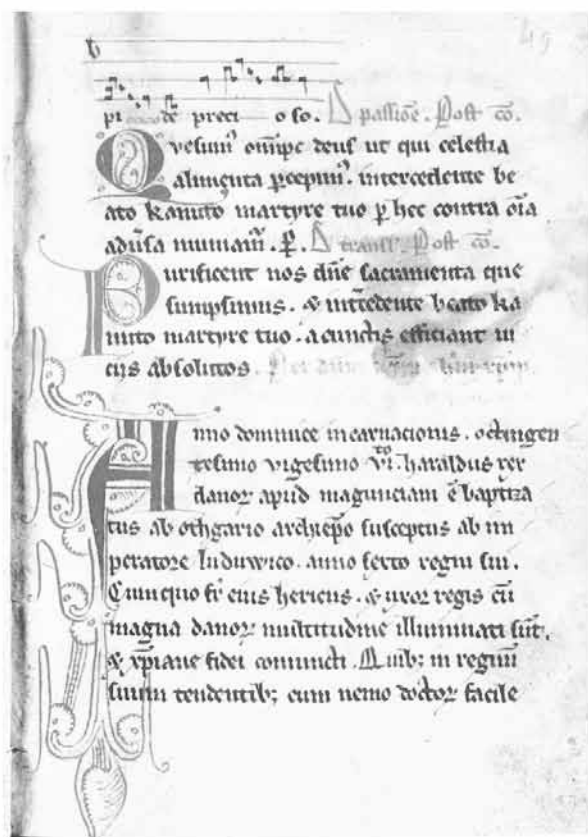 49
b
pi de preci o so. D passiōe. Post cō.
Qvesum' omīpc deus ut qui celestia
alimenta p̄cepim'. intercedente be
ato kanuto martyre tuo p̄ hec contra oīa
adūsa muniam̄. P. D transl'. Post cō.
Purificent nos dn̄e sacramenta que
sumpsimus. & int̄cedente beato ka
nuto martyre tuo. a cunctis efficiant ui
ciis absolutos.
Anno dominice incarnacionis. octingen
tesimo vigesimo vi.to haraldus rex
danoꝝ apud magunciam ē baptiza
tus ab othgario archiep̄o susceptus ab im
peratore luduwico. anno sexto regni sui.
Cum quo fr̄ eius hericus. & uxor regis cū
magna danoꝝ multitudine illuminati sūt.
& xp̄iane fidei coniuncti. Quib; in regnū
suum tendentib; cum nemo doctor facile